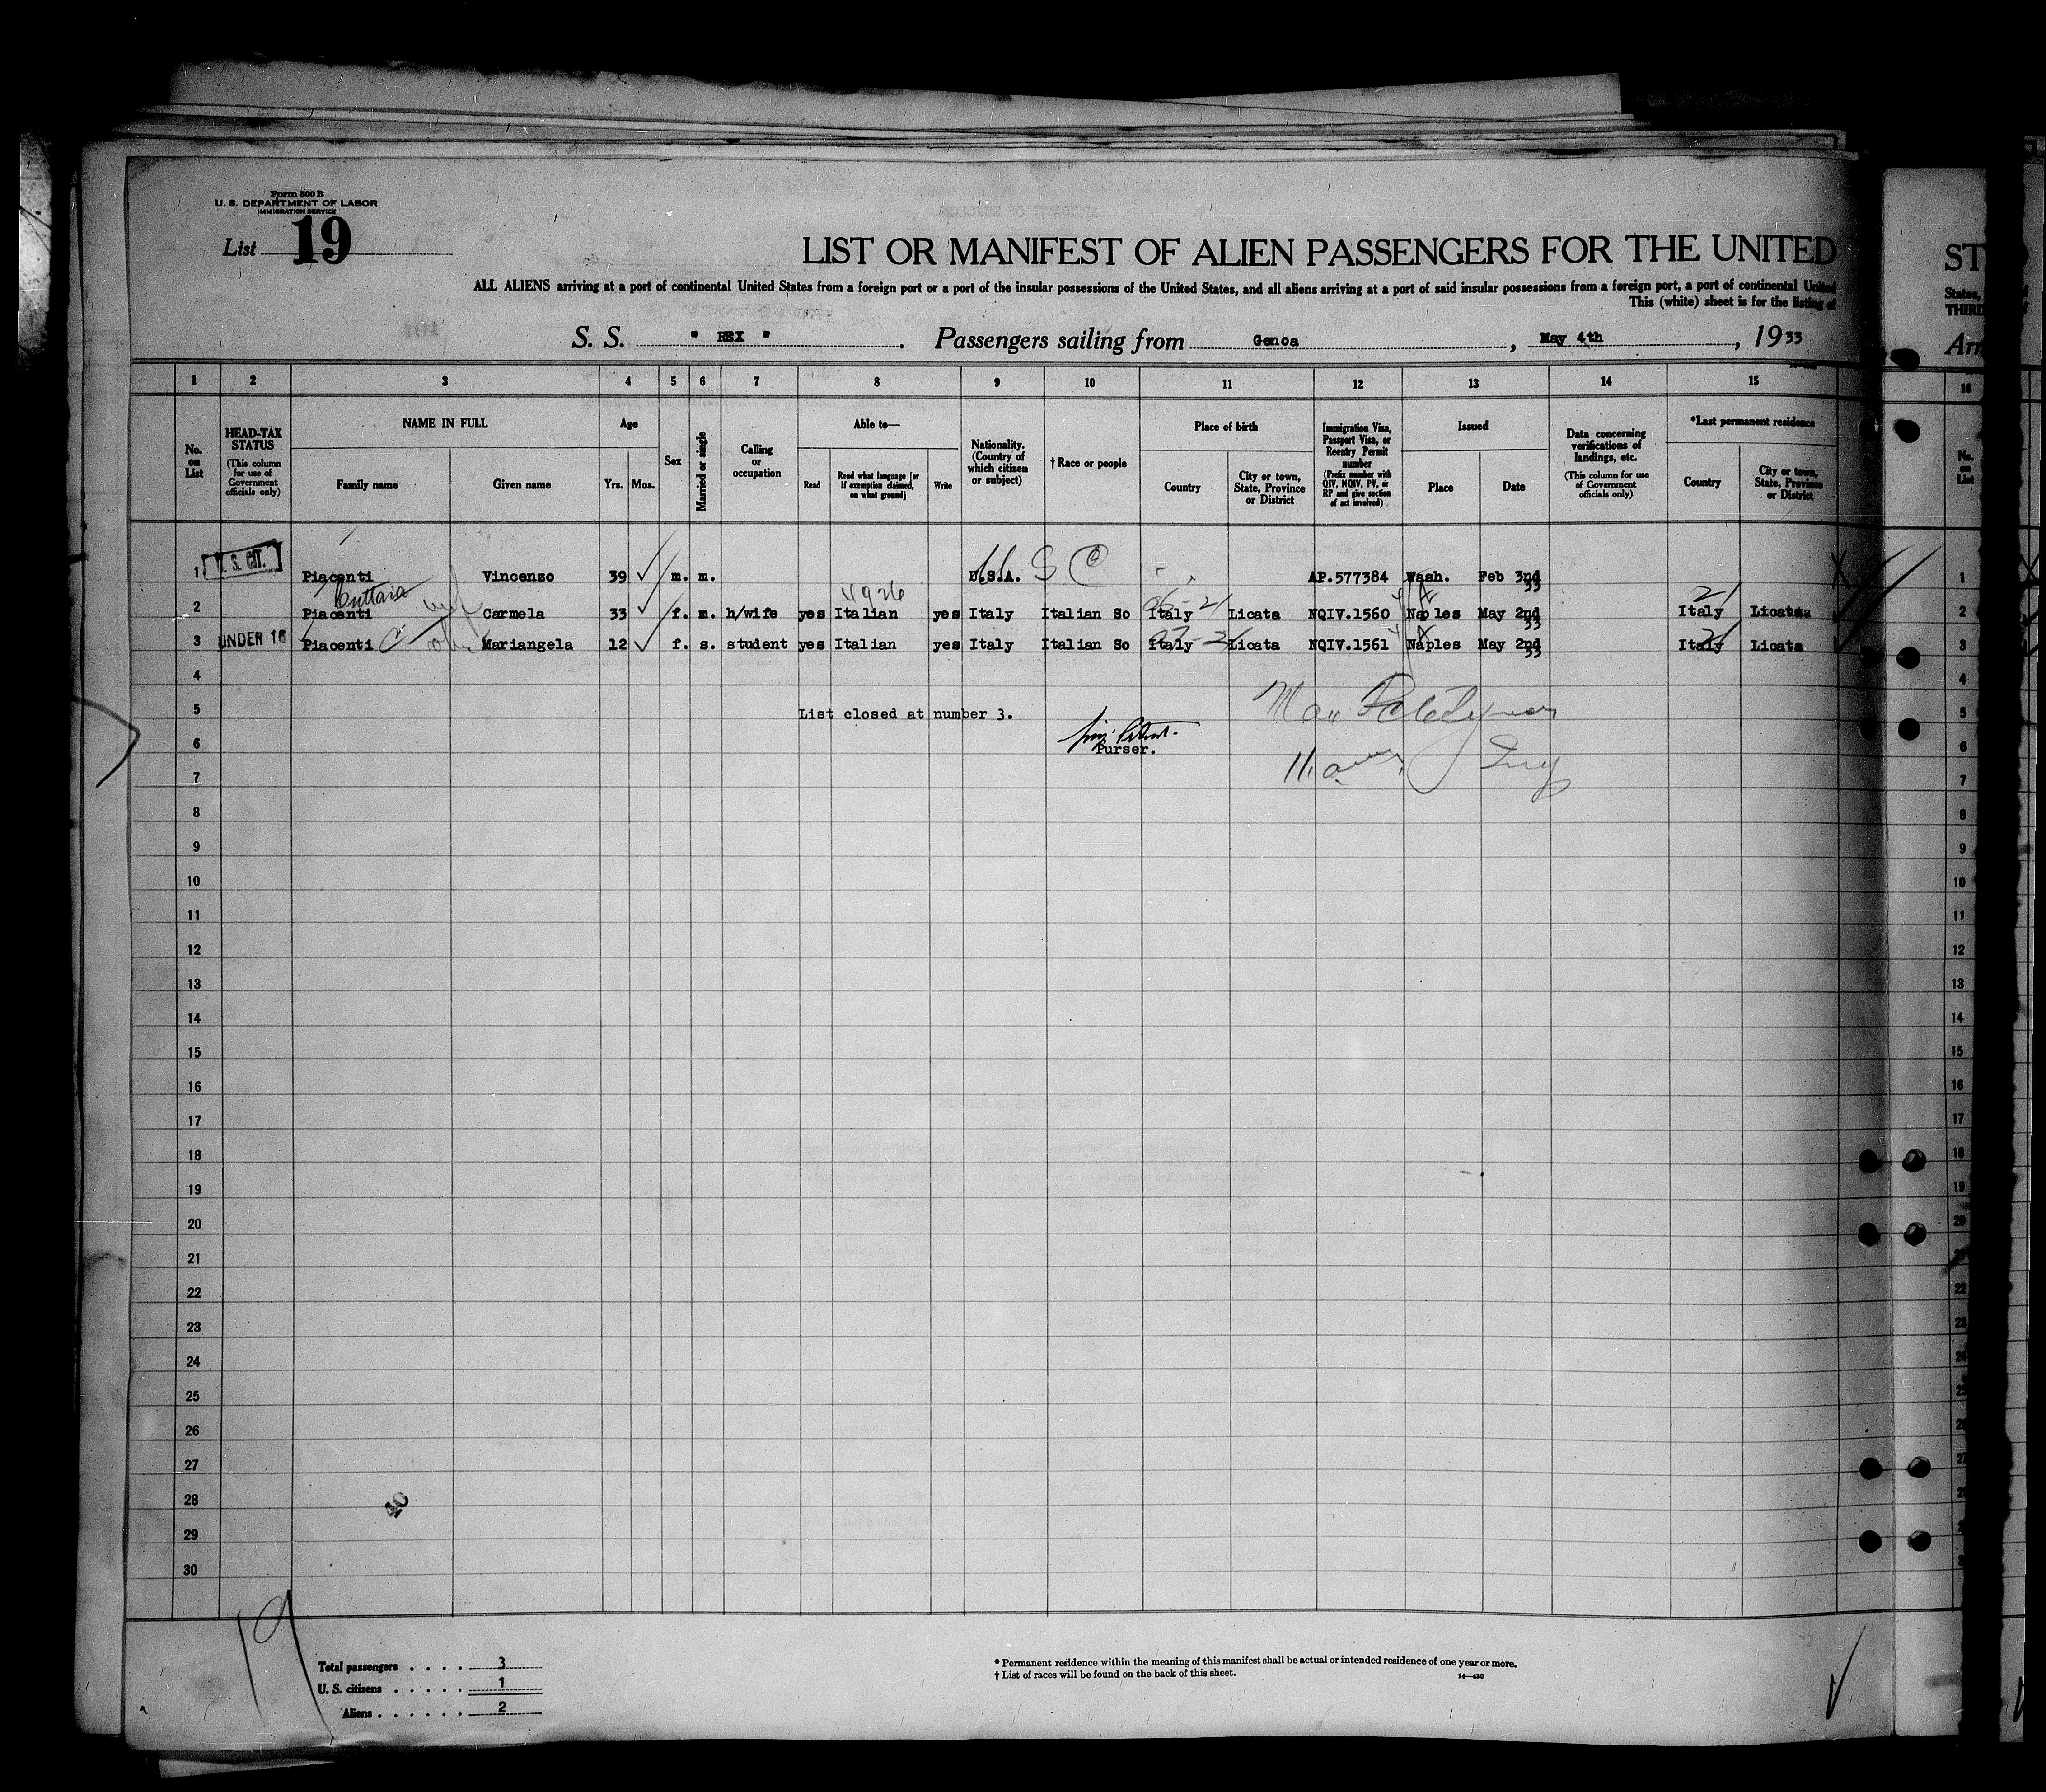 Form 500 B
U. S. DEPARTMENT OF LABOR
IMMIGRATION SERVICE
List 19
LIST OR MANIFEST OF ALIEN PASSENGERS FOR THE UNITED
ST
ALL ALIENS arriving at a port of continental United States from a foreign port or a port of the insular possessions of the United States, and all aliens arriving at a port of said insular possessions from a foreign port, a port of continental United
States,
This (white) sheet is for the listing of
THIRD
S. S. " REX ". Passengers sailing from Genoa, May 4th, 1933
Arr
1 2 3 4 5 6 7 8 9 10 11 12 13 14 15 16
No. on List
HEAD-TAX STATUS (This column for use of Government officials only)
NAME IN FULL
Family name
Given name
Age
Yrs. Mos.
Sex
Married or single
Calling or occupation
Able to—
Read
Read what language [or if exemption claimed, on what ground]
Write
Nationality. (Country of which citizen or subject)
†Race or people
Place of birth
Country
City or town, State, Province or District
Immigration Visa, Passport Visa, or Reentry Permit number (Prefix number with QIV, NQIV, PV, or RP and give section of act involved)
Issued
Place
Date
Data concerning verifications of landings, etc. (This column for use of Government officials only)
*Last permanent residence
Country
City or town, State, Province or District
No. on List
1 U. S. CIT. Piacenti Vincenzo 39 m. m. U.S.A. U S C AP.577384 Wash. Feb 3nd 33 1
4926
2 Piacenti Carmela 33 f. m. h/wife yes Italian yes Italy Italian So Italy Licata NQIV.1560 Naples May 2nd 33 21 Italy Licata 2
3 UNDER 16 Piacenti Mariangela 12 f. s. student yes Italian yes Italy Italian So Italy Licata NQIV.1561 Naples May 2nd 33 21 Italy Licata 3
4 4
5 List closed at number 3. 5
6 Purser. 6
7 7
8 8
9 9
10 10
11 11
12 12
13 13
14 14
15 15
16 16
17 17
18 18
19 19
20 20
21 21
22 22
23 23
24 24
25 25
26 26
27 27
28 40 28
29
30
19
Total passengers . . . . 3
U. S. citizens . . . . . 1
Aliens . . . . . . 2
* Permanent residence within the meaning of this manifest shall be actual or intended residence of one year or more.
† List of races will be found on the back of this sheet.
14—430